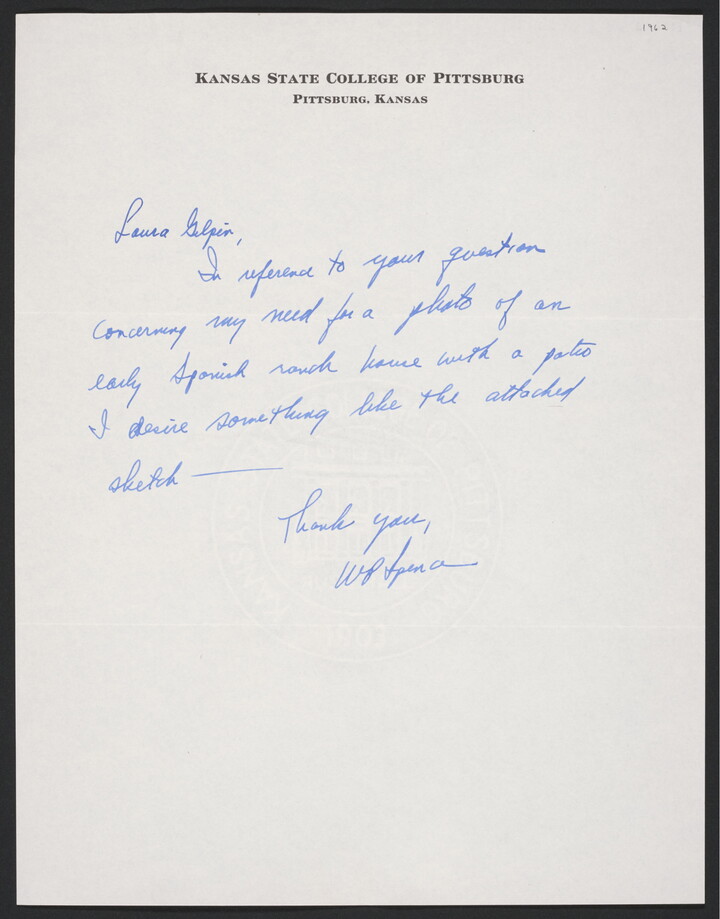 1962
KANSAS STATE COLLEGE OF PITTSBURG
PITTSBURG, KANSAS
Laura Gilpin,
In reference to your question
concerning my need for a photo of an
early Spanish ranch house with a patio
I desire something like the attached
sketch —
Thank you,
WP Spence